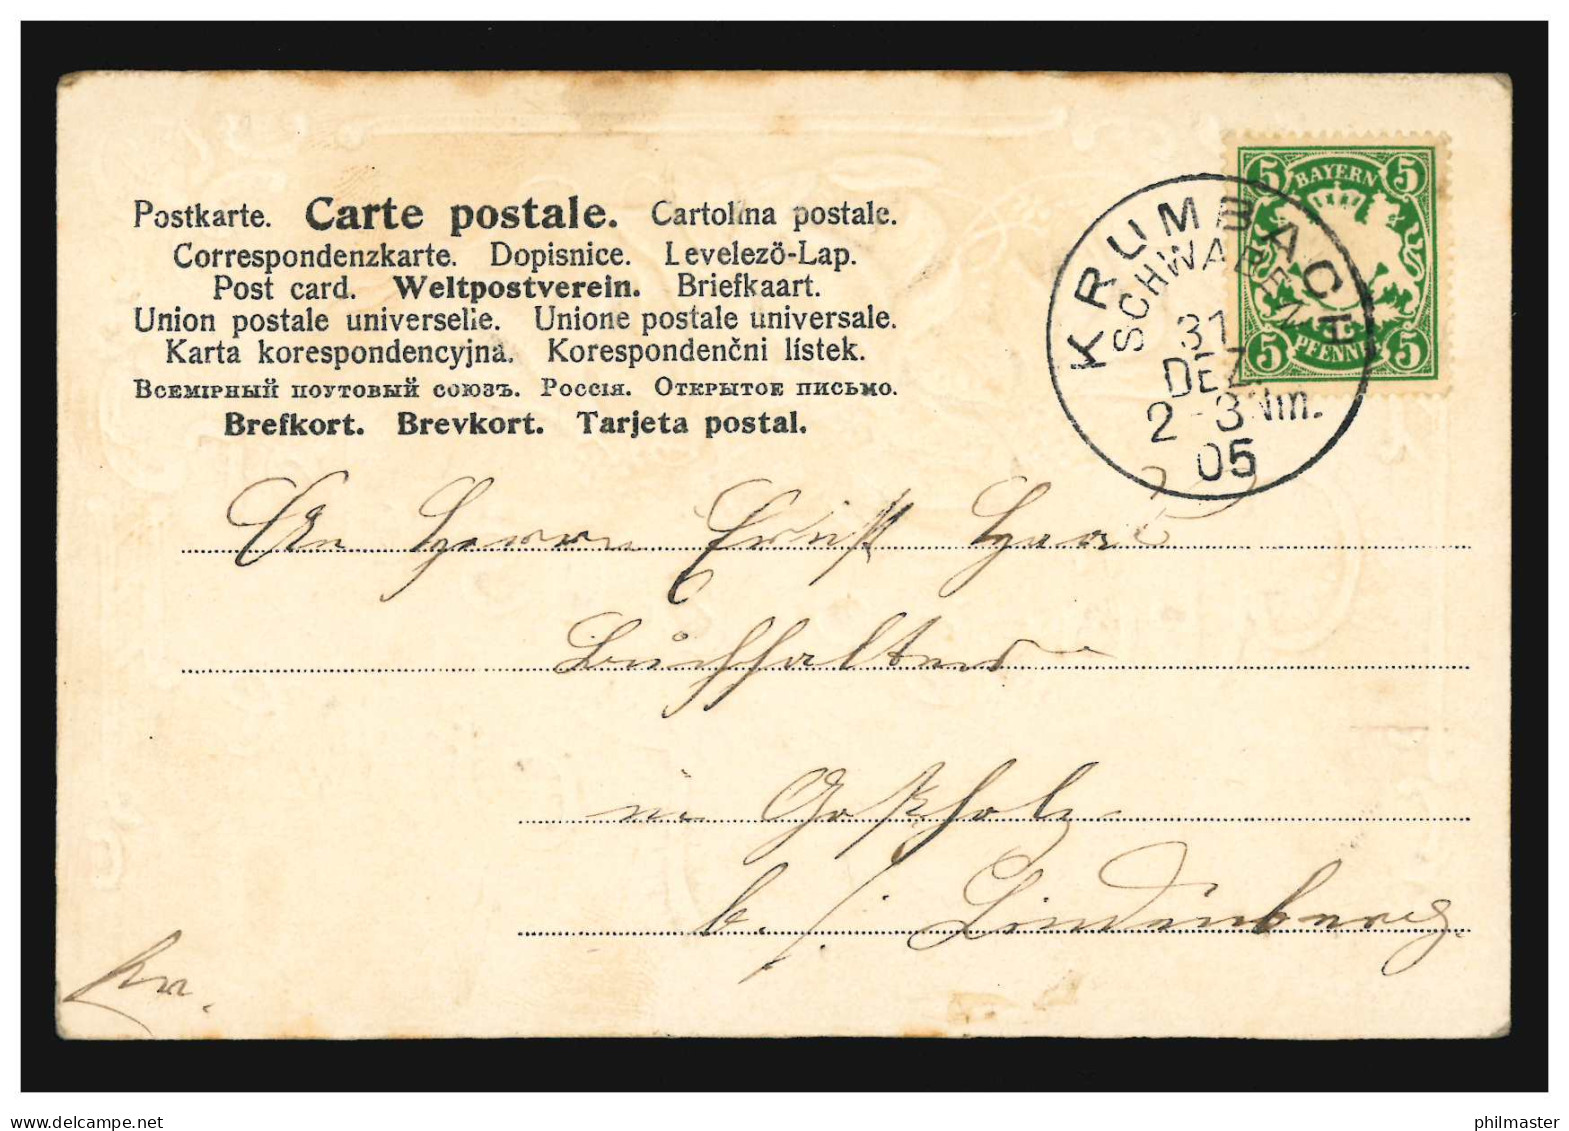 Postkarte. Carte postale. Cartolina postale.
Correspondenzkarte. Dopisnice. Levelezö-Lap.
Post card. Weltpostverein. Briefkaart.
Union postale universelle. Unione postale universale.
Karta korespondencyjna. Korespondenčni lístek.
Всемірный поутовый союзъ. Россія. Открытое письмо.
Brefkort. Brevkort. Tarjeta postal.
5 BAYERN 5
5 PFENNIG 5
KRUMBACH
SCHWABEN
31
DEZ.
2-3 Nm.
05
An Herrn Ernst
Buchhalter
in Goßholz
b. / Lindenberg.
delcampe.net
philmaster